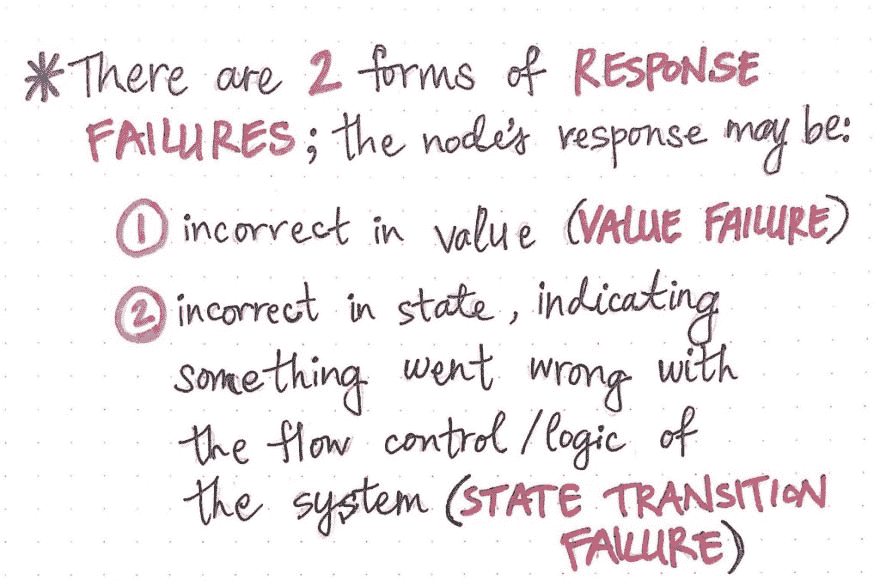 * There are 2 forms of RESPONSE
FAILURES; the node's response may be:
① incorrect in value (VALUE FAILURE)
② incorrect in state, indicating
something went wrong with
the flow control/logic of
the system (STATE TRANSITION
FAILURE)